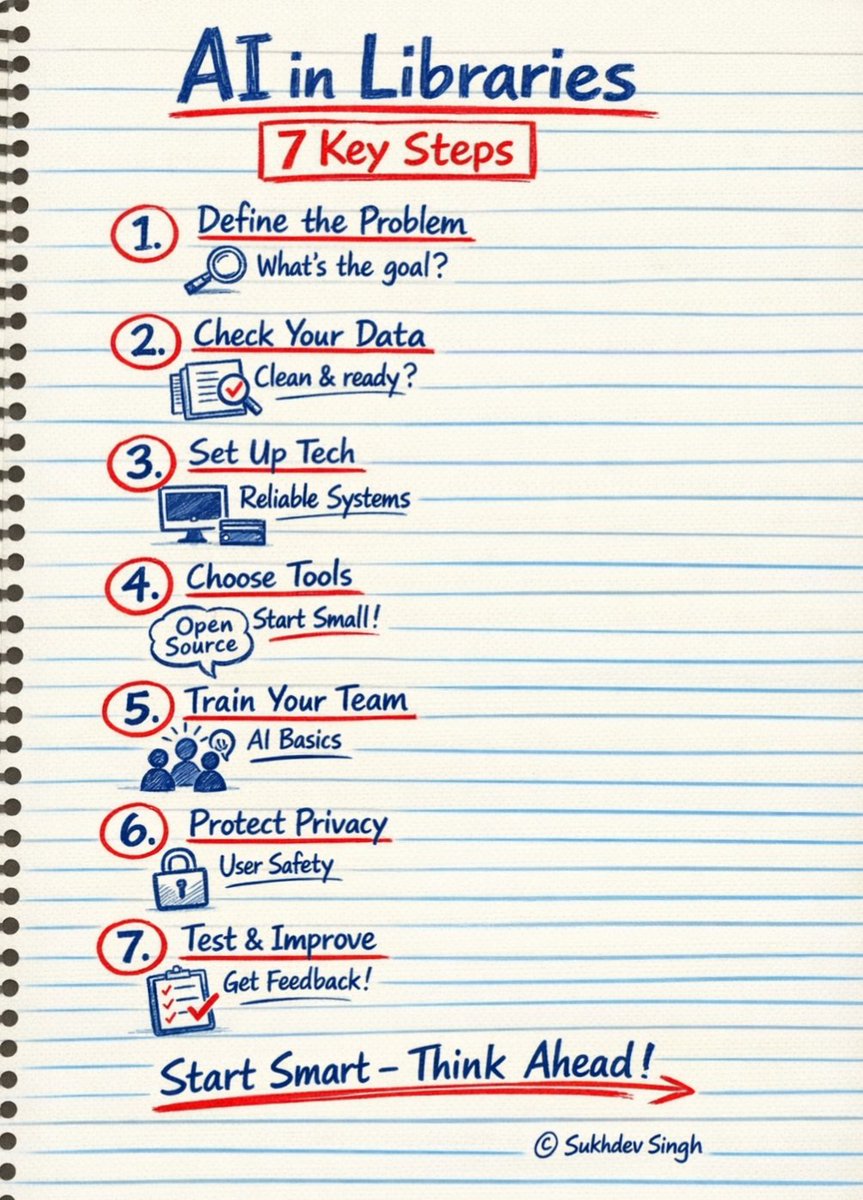 AI in Libraries
7 Key Steps
1. Define the Problem
What's the goal?
2. Check Your Data
Clean & ready?
3. Set Up Tech
Reliable Systems
4. Choose Tools
Open
Source
Start Small!
5. Train Your Team
AI Basics
6. Protect Privacy
User Safety
7. Test & Improve
Get Feedback!
Start Smart – Think Ahead!
© Sukhdev Singh